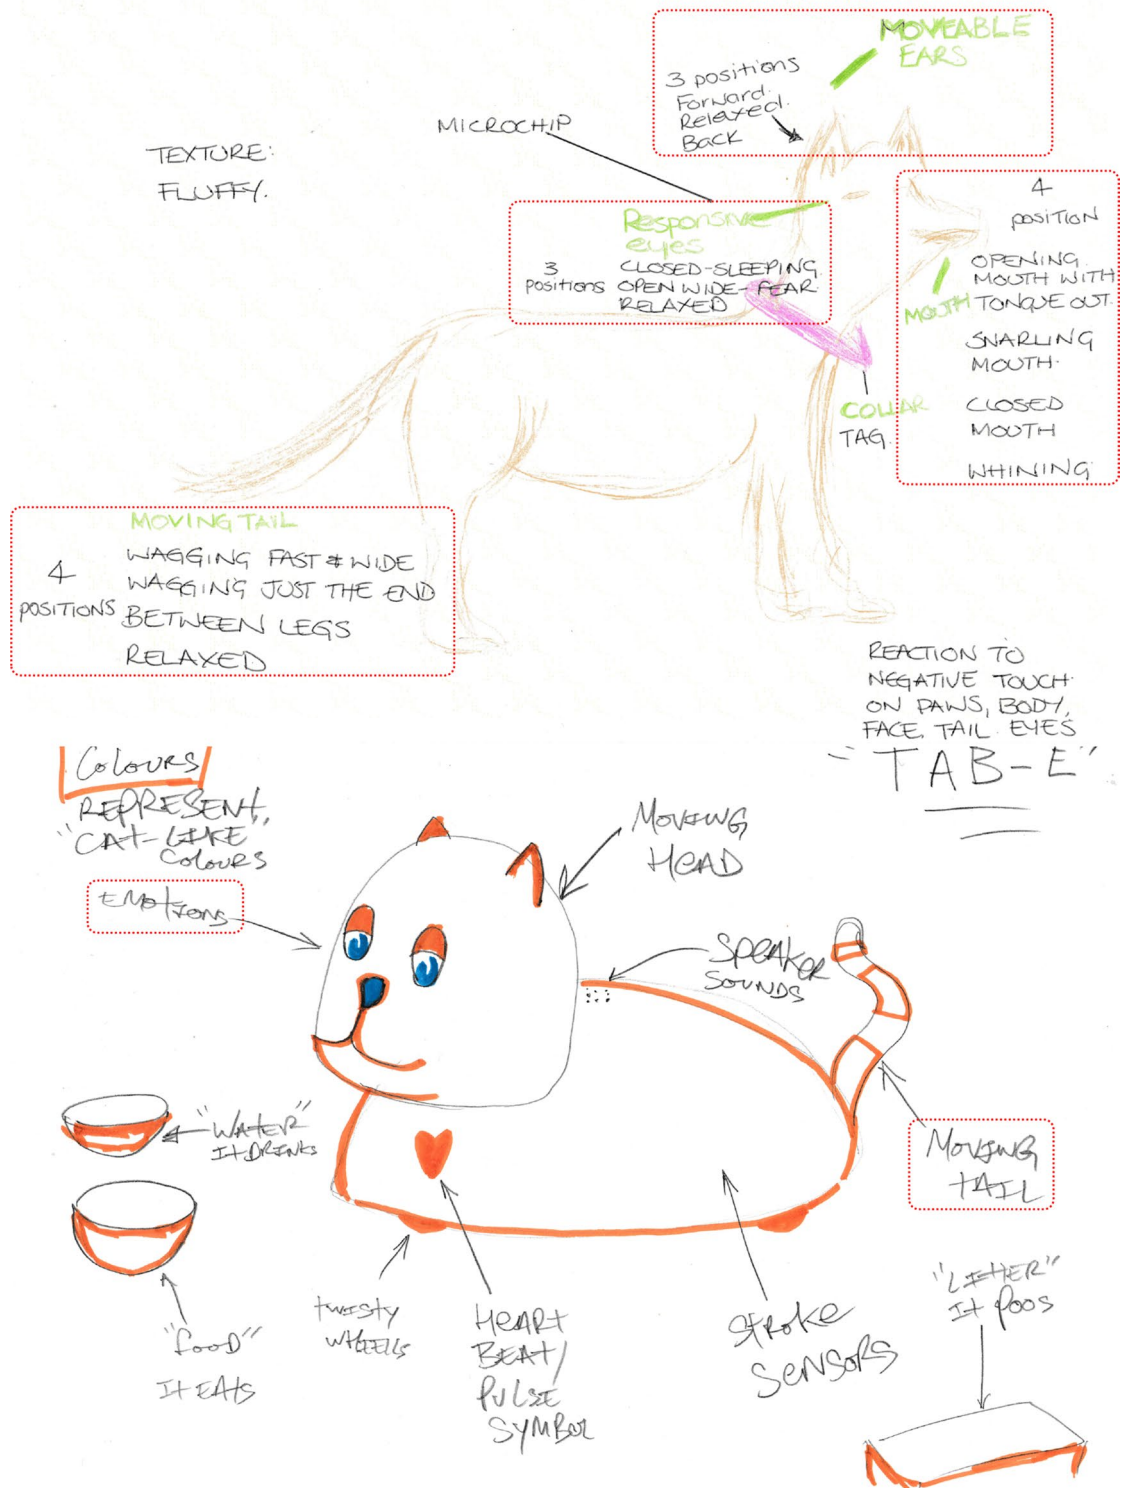 MOVEABLE
EARS
3 positions
Forward.
Relaxed.
Back
MICROCHIP
TEXTURE:
FLUFFY.
Responsive
eyes
3
positions
CLOSED-SLEEPING.
OPEN WIDE-FEAR.
RELAXED
4
POSITION
MOUTH
OPENING
MOUTH WITH
TONGUE OUT.
SNARLING
MOUTH.
CLOSED
MOUTH
WHINING
COLLAR
TAG.
MOVING TAIL
4
POSITIONS
WAGGING FAST & WIDE
WAGGING JUST THE END
BETWEEN LEGS
RELAXED
REACTION TO
NEGATIVE TOUCH
ON PAWS, BODY,
FACE, TAIL. EYES
"TAB-E"
COLOURS
REPRESENT,
"CAT-LIKE"
COLOURS
EMOTIONS
MOVING
HEAD
SPEAKER
SOUNDS
"WATER"
IT DRINKS
MOVING
TAIL
"FOOD"
IT EATS
TWISTY
WHEELS
HEART
BEAT/
PULSE
SYMBOL
STROKE
SENSORS
"LITTER"
IT POOS